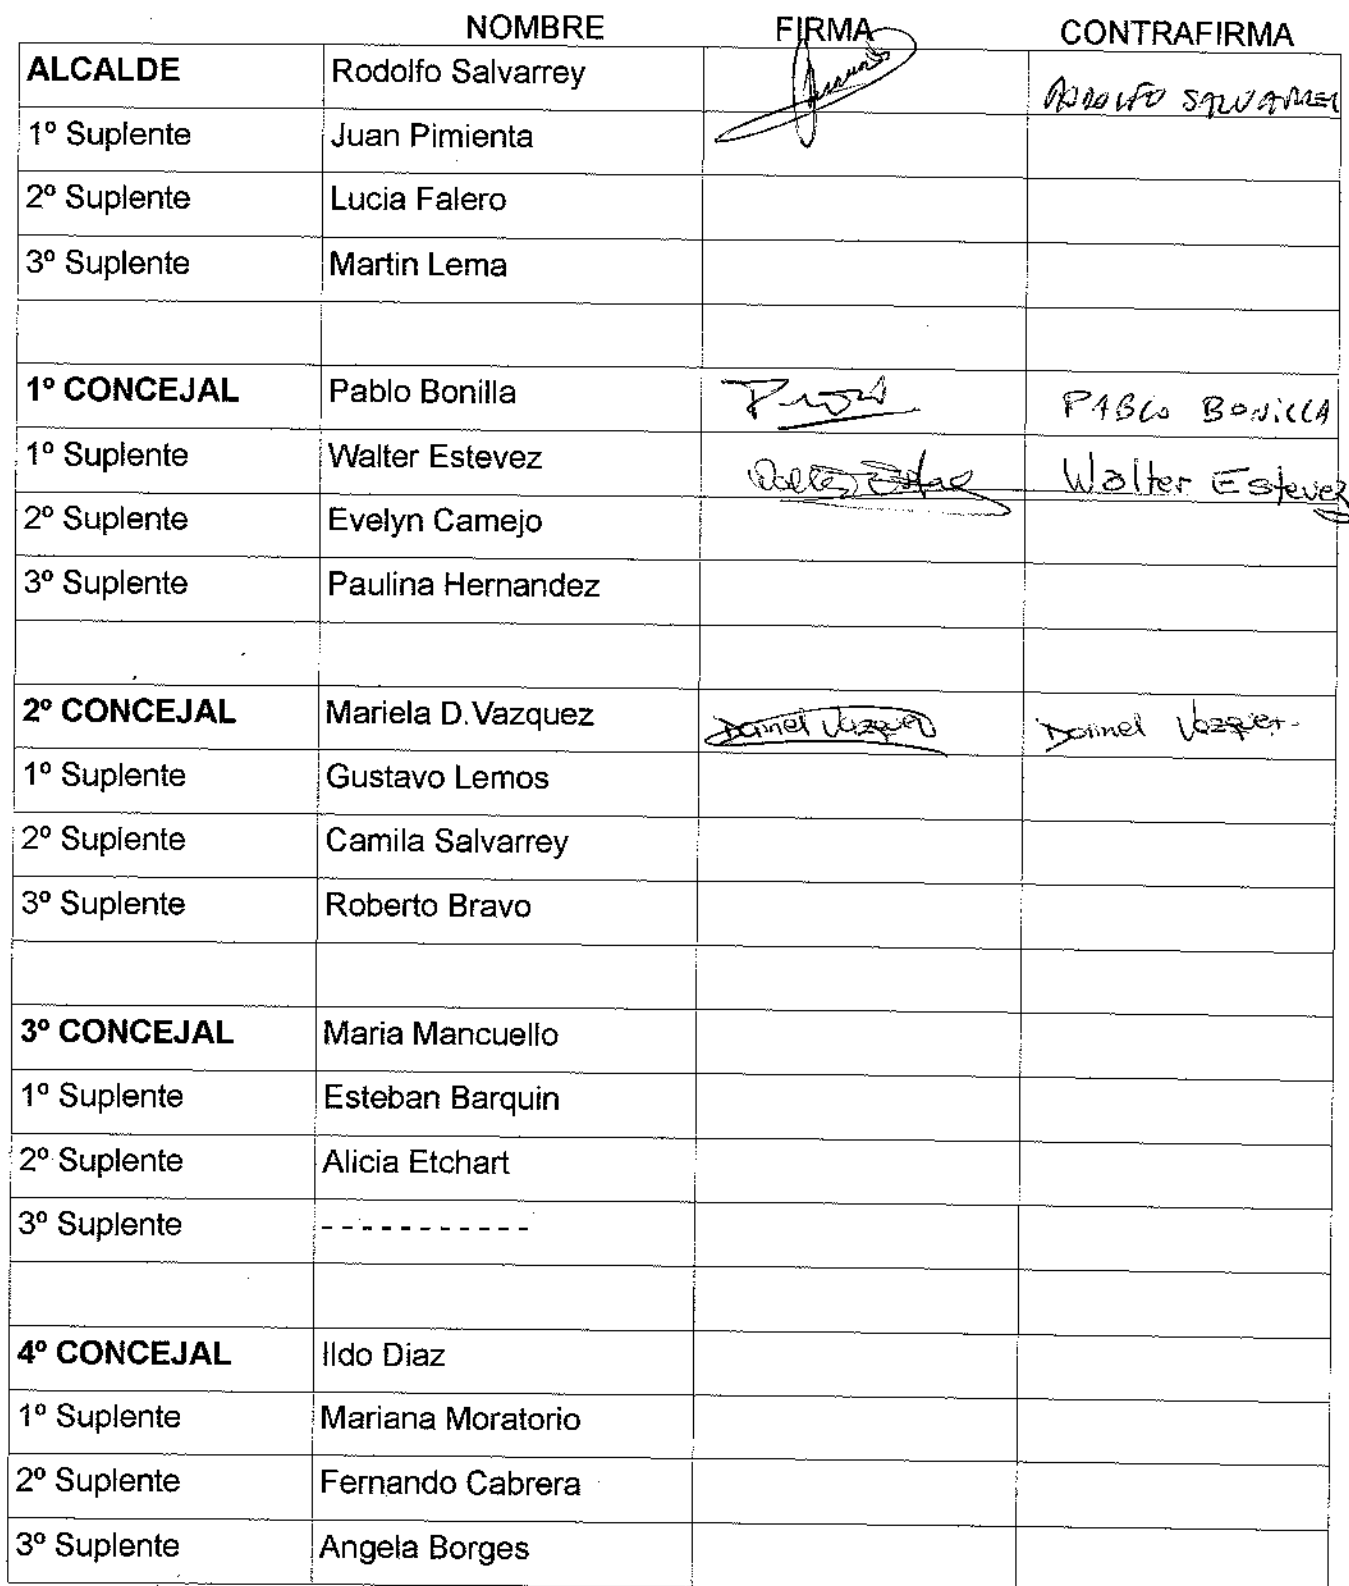 NOMBRE FIRMA CONTRAFIRMA
ALCALDE Rodolfo Salvarrey RODOLFO SALVARREY
1º Suplente Juan Pimienta
2º Suplente Lucia Falero
3º Suplente Martin Lema
1º CONCEJAL Pablo Bonilla PABLO BONILLA
1º Suplente Walter Estevez Walter Estevez Walter Estevez
2º Suplente Evelyn Camejo
3º Suplente Paulina Hernandez
2º CONCEJAL Mariela D.Vazquez Daniel Vazquez Daniel Vazquez
1º Suplente Gustavo Lemos
2º Suplente Camila Salvarrey
3º Suplente Roberto Bravo
3º CONCEJAL Maria Mancuello
1º Suplente Esteban Barquin
2º Suplente Alicia Etchart
3º Suplente -----------
4º CONCEJAL Ildo Diaz
1º Suplente Mariana Moratorio
2º Suplente Fernando Cabrera
3º Suplente Angela Borges